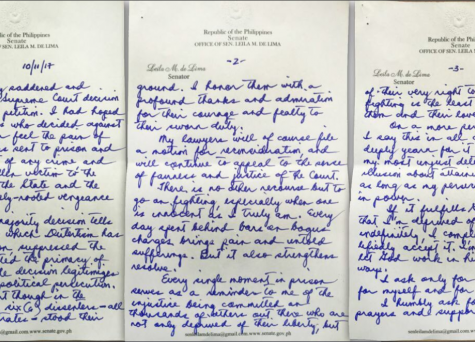 Republic of the Philippines
Senate
OFFICE OF SEN. LEILA M. DE LIMA
10/11/17
saddened and
Supreme Court decision
petition. I had hoped
who decided against
feel the pain of
sent to prison and
of any crime and
victim to the
the State and the
rooted vengeance
majority decision tells
which Dutertism has
suppressed the
the primacy of
decision legitimizes
political persecution.
though in the
six (6) dissenters - all
stood their
@gmail.com www.senate.gov.ph
Republic of the Philippines
Senate
OFFICE OF SEN. LEILA M. DE LIMA
-2-
Leila M. de Lima
Senator
ground. I honor them with a
profound thanks and admiration
for their courage and fealty to
their sworn duty.
My lawyers will of course file
a motion for reconsideration and
will continue to appeal to the sense
of fairness and justice of the Court.
There is no other recourse but to
go on fighting, especially when one
is innocent as I truly am. Every
day spent behind bars on bogus
charges brings pain and untold
sufferings. But it also strengthens
resolve.
Every single moment in prison
serves as a reminder to me of the
injustice being committed on
thousands of others out there who are
not only deprived of their liberty, but
@gmail.com www.senate.gov.ph
Republic of the Philippines
Senate
OFFICE OF SEN. LEILA M. DE LIMA
-3-
Leila M. de Lima
Senator
of their very right to
fighting is the least
them and their love
On a more
I say this in all
deeply yearn for it
my most unjust
illusion about
as long as my
in power.
it fulfills
that I'm
indefinitely, I
accept it. I'm
let God work in His
ways.
I ask only for
for myself and for
I humbly ask
prayers and support
@gmail.com www.senate